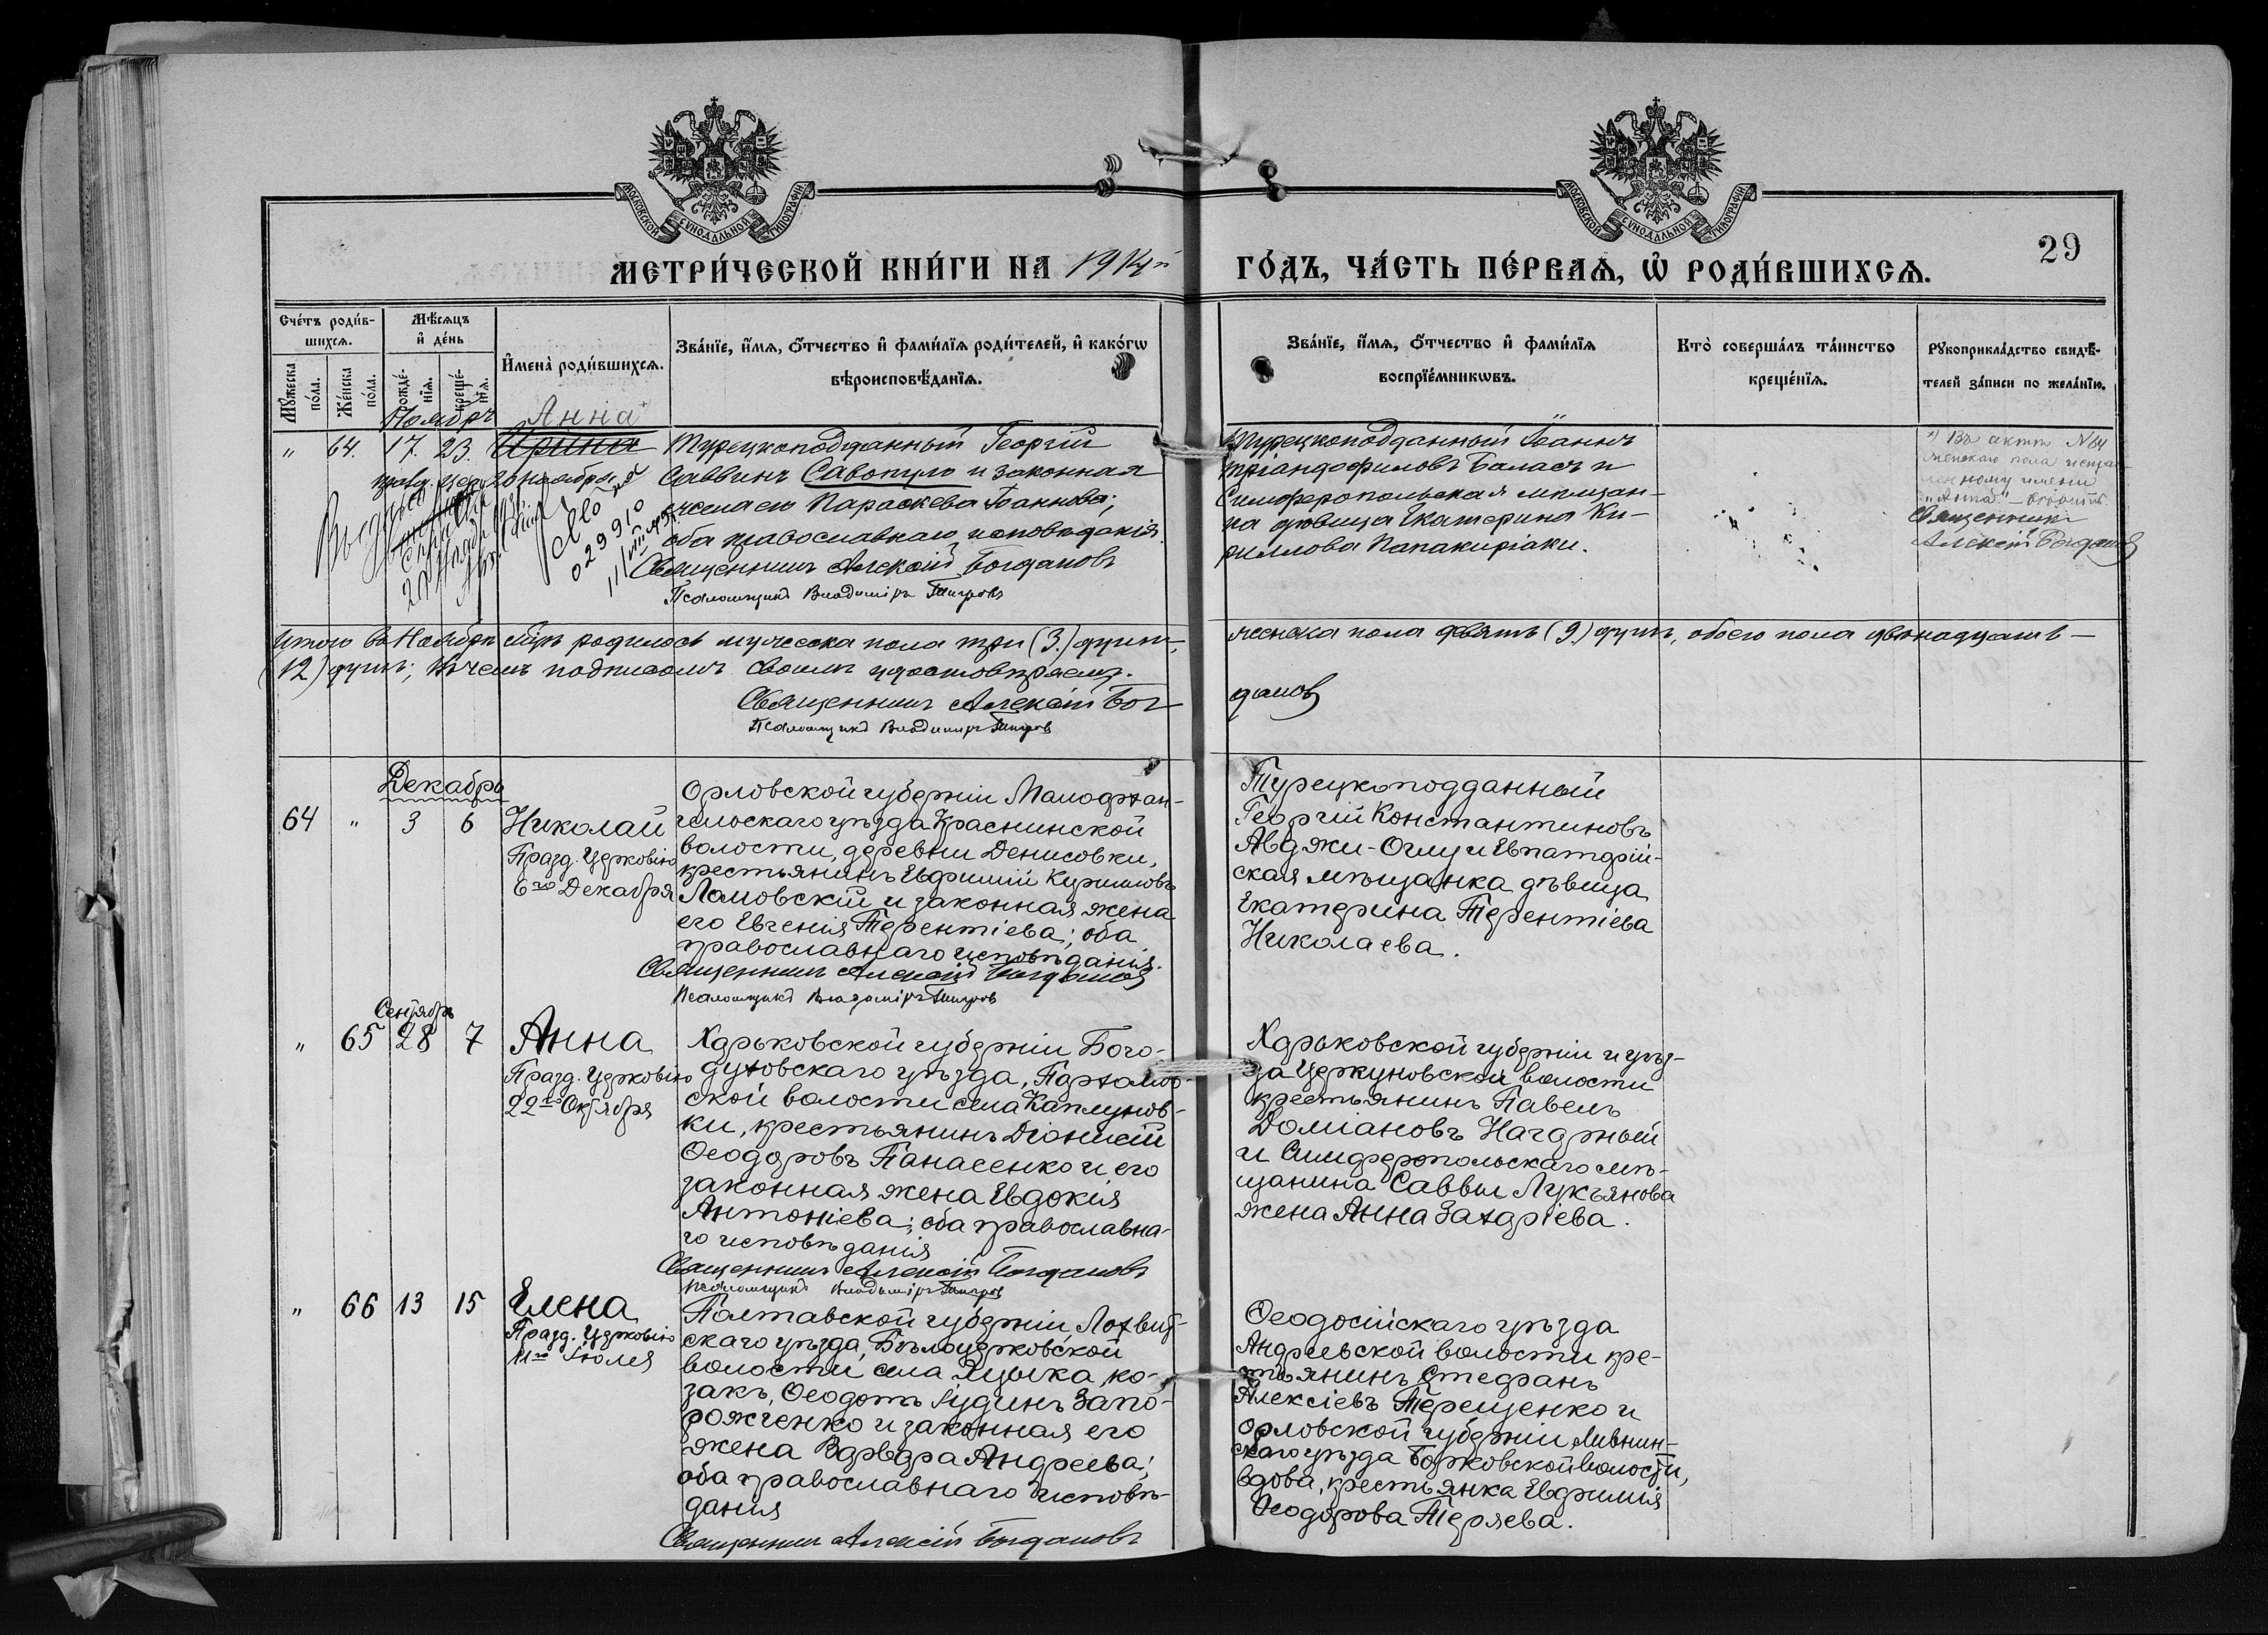 МОСКОВСКОЙ СѴНОДАЛЬНОЙ ТИПОГРАФІИ
МОСКОВСКОЙ СѴНОДАЛЬНОЙ ТИПОГРАФІИ
МЕТРИ́ЧЕСКОЙ КНИ́ГИ НА 1914й ГО́ДЪ, ЧА́СТЬ ПЕ́РВАѦ, Ѡ҆ РОДИ́ВШИХСѦ.
29
Сче́тъ роди́в-
шихсѧ.
Мѣ́сѧцъ
и҆ де́нь
Мꙋ́жеска
по́ла.
Же́нска
по́ла.
рожде́-
нїѧ.
креще́-
нїѧ.
И҆мена̀ роди́вшихсѧ.
Зва́нїе, и҆́мѧ, ѻ҆́тчество и҆ фами́лїѧ роди́телей, и҆ како́гѡ
вѣроисповѣ́данїѧ.
Зва́нїе, и҆́мѧ, ѻ҆́тчество и҆ фами́лїѧ
воспрїе́мникѡвъ.
Кто̀ соверша́лъ та́инство
креще́нїѧ.
Рꙋкоприкла́дство свидѣ́-
телей за́писи по жела́нїю.
Ноябрь
Анна
" 64. 17. 23. Ирина
Турецкоподданный Георгій
Саввинъ Савопуло и законная
жена его Параскева Іоаннова;
оба православнаго исповѣданія.
Священникъ Алексій Богдановъ
Псаломщикъ Владиміръ
029910
Турецкоподданный Іоаннъ
Тріандофиловъ Баласъ и
Симферопольская мѣщан-
ка дѣвица Екатерина Ки-
риллова Папакиріаки.
Въ актѣ №64
женскаго пола
ному имени
"Анна" - вѣрить
Священникъ
Алексій Богданов
Итого въ Ноябрѣ м̃цѣ родилось мужеска пола три (3.) душъ, женска пола девять (9) душъ, обоего пола двѣнадцать -
(12) душъ; въ чемъ подписомъ своимъ удостовѣряемъ.
Священникъ Алексій Богданов
Псаломщикъ Владиміръ
Декабрь
64 " 3 6 Николай
Празд. Церковію
6го Декабря
Орловской губерніи Малоархан-
гельскаго уѣзда Краснинской
волости, деревни Денисовки,
крестьянинъ Евфимій Кирилловъ
Ломовскій и законная жена
его Евгенія Терентіева; оба
православнаго исповѣданія.
Священникъ Алексій Богдановъ
Псаломщикъ Владиміръ
Турецкоподданный
Георгій Константиновъ
Авджи-Оглу и Евпаторій-
ская мѣщанка дѣвица
Екатерина Терентіева
Николаева.
Сентябрь
" 65 28 7 Анна
Празд. Церковію
22го Октября
Харьковской губерніи Бого-
духовскаго уѣзда, Пархомов-
ской волости села Каплунов-
ки, крестьянинъ Діонисій
Ѳеодоровъ Панасенко и его
законная жена Евдокія
Антоніева; оба православна-
го исповѣданія
Священникъ Алексій Богдановъ
Псаломщикъ Владиміръ
Харьковской губерніи и уѣз-
да Церкуновской волости
крестьянинъ Павелъ
Доміановъ Нагорный
и Симферопольскаго мѣ-
щанина Саввы Лукьянова
жена Анна Захаріева.
" 66 13 15 Елена
Празд. Церковію
11го Іюля
Полтавской губерніи Лохвиц-
скаго уѣзда, Бѣлоцерковской
волости, села Яцыка, ко-
закъ, Ѳеодотъ Іудинъ Запо-
рожченко и законная его
жена Варвара Андреева;
оба православнаго исповѣ-
данія
Священникъ Алексій Богдановъ
Ѳеодосійскаго уѣзда
Андреевской волости кре-
стьянинъ Стефанъ
Алексіевъ Терещенко и
Орловской губерніи Ливнин-
скаго уѣзда Борковской волости,
вдова, крестьянка Евфимія
Ѳеодорова Теряева.